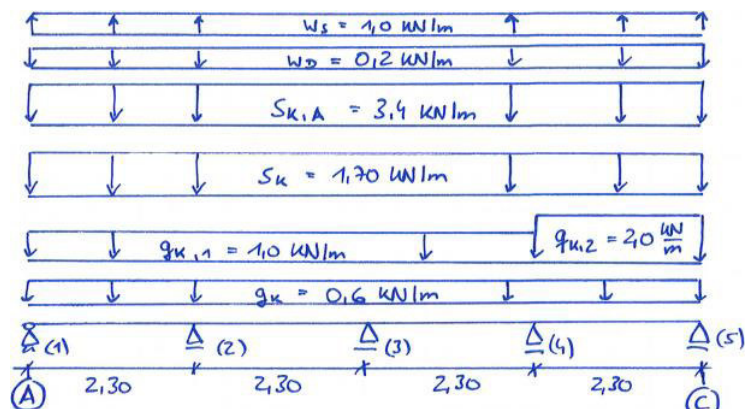 ws = 1,0 kN/m
wD = 0,2 kN/m
sk,A = 3,4 kN/m
sk = 1,70 kN/m
gk,1 = 1,0 kN/m
qk,2 = 2,0 kN/m
gk = 0,6 kN/m
(1) (2) (3) (4) (5)
2,30 2,30 2,30 2,30
A C